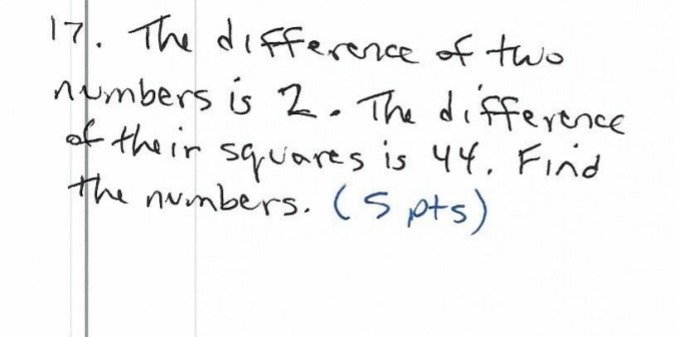 17. The difference of two
numbers is 2. The difference
of their squares is 44. Find
the numbers. (5 pts)